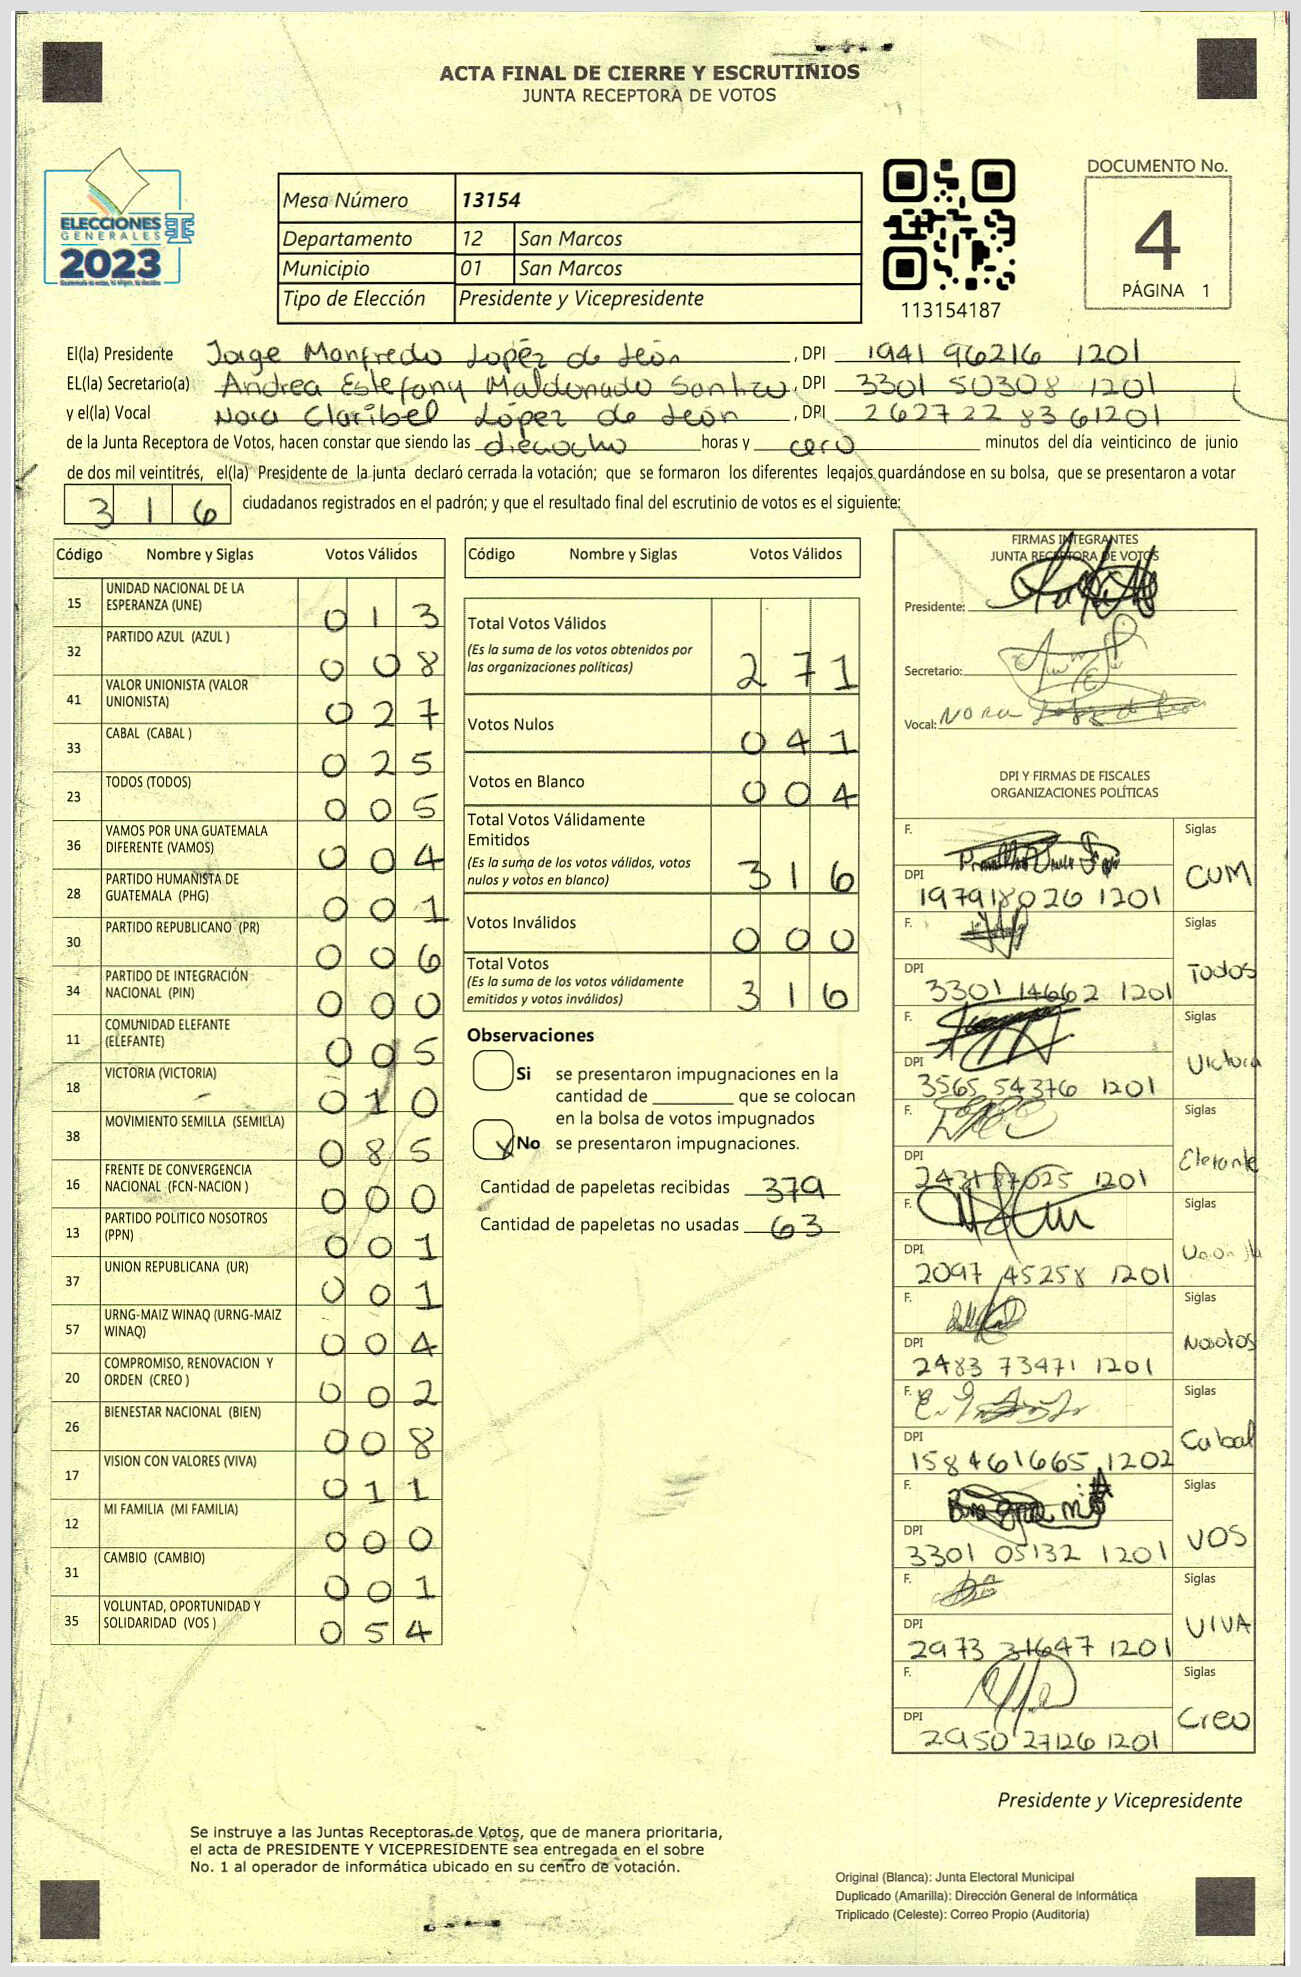 ACTA FINAL DE CIERRE Y ESCRUTINIOS
JUNTA RECEPTORA DE VOTOS
ELECCIONES
GENERALES
2023
Mesa Número 13154
Departamento 12 San Marcos
Municipio 01 San Marcos
Tipo de Elección Presidente y Vicepresidente
113154187
DOCUMENTO No.
4
PÁGINA 1
El(la) Presidente Jorge Manfredo López de León, DPI 1941 96216 1201
EL(la) Secretario(a) Andrea Estefany Maldonado Santizo, DPI 3301 50308 1201
y el(la) Vocal Nora Claribel López de León, DPI 262722 83 61201
de la Junta Receptora de Votos, hacen constar que siendo las dieciocho horas y cero minutos del día veinticinco de junio
de dos mil veintitrés, el(la) Presidente de la junta declaró cerrada la votación; que se formaron los diferentes legajos guardándose en su bolsa, que se presentaron a votar
316 ciudadanos registrados en el padrón; y que el resultado final del escrutinio de votos es el siguiente:
Código Nombre y Siglas Votos Válidos
15 UNIDAD NACIONAL DE LA ESPERANZA (UNE) 013
32 PARTIDO AZUL (AZUL ) 008
41 VALOR UNIONISTA (VALOR UNIONISTA) 027
33 CABAL (CABAL ) 025
23 TODOS (TODOS) 005
36 VAMOS POR UNA GUATEMALA DIFERENTE (VAMOS) 004
28 PARTIDO HUMANISTA DE GUATEMALA (PHG) 001
30 PARTIDO REPUBLICANO (PR) 006
34 PARTIDO DE INTEGRACIÓN NACIONAL (PIN) 000
11 COMUNIDAD ELEFANTE (ELEFANTE) 005
18 VICTORIA (VICTORIA) 010
38 MOVIMIENTO SEMILLA (SEMILLA) 085
16 FRENTE DE CONVERGENCIA NACIONAL (FCN-NACION ) 000
13 PARTIDO POLITICO NOSOTROS (PPN) 001
37 UNION REPUBLICANA (UR) 001
57 URNG-MAIZ WINAQ (URNG-MAIZ WINAQ) 004
20 COMPROMISO, RENOVACION Y ORDEN (CREO ) 002
26 BIENESTAR NACIONAL (BIEN) 008
17 VISION CON VALORES (VIVA) 011
12 MI FAMILIA (MI FAMILIA) 000
31 CAMBIO (CAMBIO) 001
35 VOLUNTAD, OPORTUNIDAD Y SOLIDARIDAD (VOS ) 054
Código Nombre y Siglas Votos Válidos
Total Votos Válidos
(Es la suma de los votos obtenidos por
las organizaciones políticas) 271
Votos Nulos 041
Votos en Blanco 004
Total Votos Válidamente
Emitidos
(Es la suma de los votos válidos, votos
nulos y votos en blanco) 316
Votos Inválidos 000
Total Votos
(Es la suma de los votos válidamente
emitidos y votos inválidos) 316
Observaciones
Si se presentaron impugnaciones en la
cantidad de ________ que se colocan
en la bolsa de votos impugnados
x No se presentaron impugnaciones.
Cantidad de papeletas recibidas 379
Cantidad de papeletas no usadas 63
FIRMAS INTEGRANTES
JUNTA RECEPTORA DE VOTOS
Presidente:
Secretario:
Vocal: Nora López de León
DPI Y FIRMAS DE FISCALES
ORGANIZACIONES POLÍTICAS
F. Siglas
DPI 197918026 1201 CUM
F. Siglas
DPI 3301 14662 1201 Todos
F. Siglas
DPI 3565 54376 1201 Victoria
F. Siglas
DPI 1201 Elefante
F. Siglas
DPI 2097 45258 1201 Unionista
F. Siglas
DPI 2483 73471 1201 Nosotros
F. Siglas
DPI 158461665 1202 Cabal
F. Siglas
DPI 3301 05132 1201 VOS
F. Siglas
DPI 2973 31647 1201 VIVA
F. Siglas
DPI 2950 27126 1201 Creo
Presidente y Vicepresidente
Se instruye a las Juntas Receptoras de Votos, que de manera prioritaria,
el acta de PRESIDENTE Y VICEPRESIDENTE sea entregada en el sobre
No. 1 al operador de informática ubicado en su centro de votación.
Original (Blanca): Junta Electoral Municipal
Duplicado (Amarilla): Dirección General de Informática
Triplicado (Celeste): Correo Propio (Auditoría)